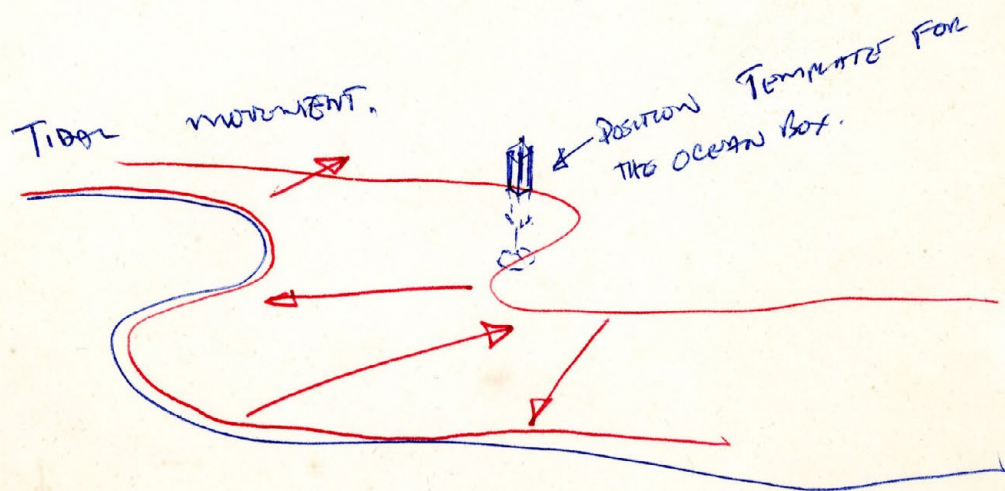 TIDAL MOVEMENT.
POSITION TEMPLATE FOR
THE OCEAN BOX.